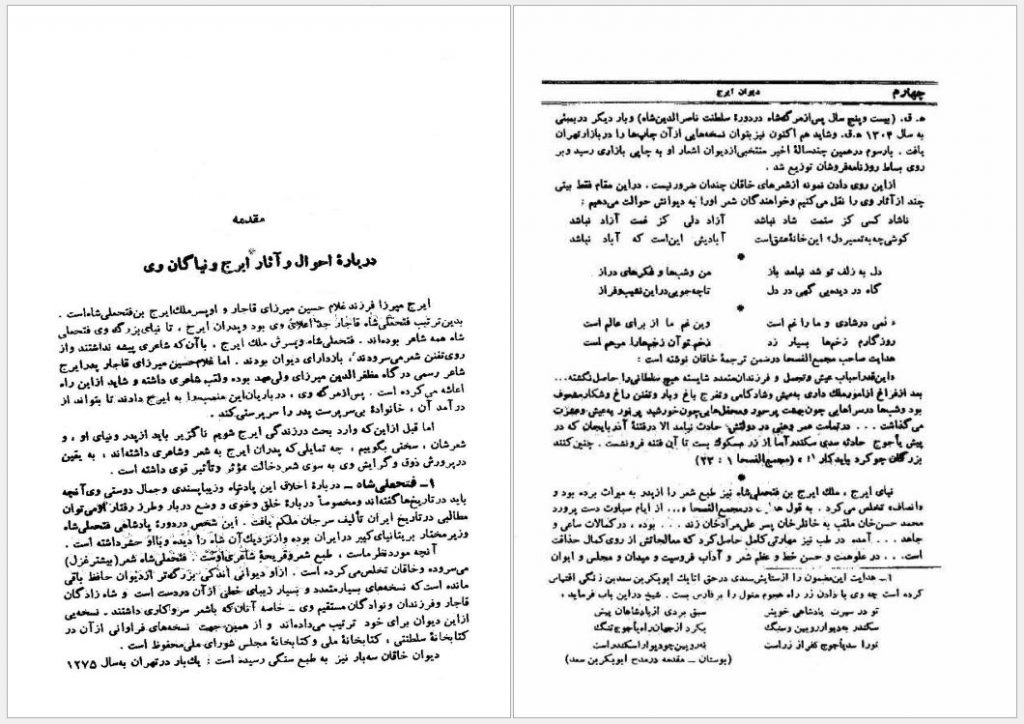 مقدمه
دربارهٔ احوال و آثار ایرج و نیاگان وی
ایرج میرزا فرزند غلام حسین میرزای قاجار و او پسر ملک‌ایرج بن فتحعلی‌شاه است .
بدین ترتیب فتحعلی شاه قاجار جد اعلای وی بود و پدران ایرج ، تا نیای بزرگ وی فتحعلی
شاه همه شاعر بوده‌اند . فتحعلی‌شاه و پسرش ملک ایرج ، با آن‌که شاعری پیشه نداشتند و از
روی تفنن شعر می‌سرودند ، باز دارای دیوان بودند . اما غلام حسین میرزای قاجار پدر ایرج
شاعر رسمی درگاه مظفرالدین میرزای ولی‌عهد بوده و لقب شاعری داشته و شاید از این راه
اعاشه می‌کرده است . پس از مرگ وی ، درباریان این منصب را به ایرج دادند تا بتواند از
درآمد آن ، خانوادهٔ بی‌سرپرست پدر را سرپرستی کند .
اما قبل از این‌که وارد بحث در زندگی ایرج شویم ناگزیر باید از پدر و نیای او ، و
شعرشان ، سخنی بگوییم ، چه تمایلی که پدران ایرج به شعر و شاعری داشته‌اند ، به یقین
در پرورش ذوق و گرایش وی به سوی شعر دخالت مؤثر و تأثیر قوی داشته است .
۱ــ فتحعلی‌شاه ــ دربارهٔ اخلاق این پادشاه و زیباپسندی و جمال دوستی وی آنچه
باید در تاریخ‌ها گفته‌اند و مخصوصاً دربارهٔ خلق و خوی و وضع دربار و طرز رفتار او می‌توان
مطالبی در تاریخ ایران تألیف سرجان ملکم یافت . این شخص در دورهٔ پادشاهی فتحعلی‌شاه
وزیر مختار بریتانیای کبیر در ایران بوده و از نزدیک آن شاه را دیده و با او حشر داشته است .
آنچه مورد نظر ماست ، طبع شعر و قریحهٔ شاعری اوست . فتحعلی‌شاه شعر (بیشتر غزل)
می‌سروده و خاقان تخلص می‌کرده است . از او دیوانی اندکی بزرگ‌تر از دیوان حافظ باقی
مانده است که نسخه‌های بسیار متعدد و بسیار زیبای خطی از آن در دست است و شاه‌زادگان
قاجار و فرزندان و نوادگان مستقیم وی ــ خاصه آنان که با شعر سر و کاری داشتند ــ نسخه‌یی
از این دیوان برای خود ترتیب می‌داده‌اند و از همین جهت نسخه‌های فراوانی از آن در
کتابخانهٔ سلطنتی ، کتابخانهٔ ملی و کتابخانهٔ مجلس شورای ملی محفوظ است .
دیوان خاقان سه‌بار نیز به طبع سنگی رسیده است : یک‌بار در تهران به سال ۱۲۷۵
چهارم دیوان ایرج
هـ . ق . (بیست و پنج سال پس از مرگ شاه در دورهٔ سلطنت ناصرالدین‌شاه) و بار دیگر در بمبئی
به سال ۱۳۰۴ هـ . ق . و شاید هم اکنون نیز بتوان نسخه‌هایی از آن چاپ‌ها را در بازار تهران
یافت . بار سوم در همین چند سالهٔ اخیر منتخبی از دیوان اشعار او به چاپی بازاری رسید و بر
روی بساط روزنامه فروشان توزیع شد .
از این روی دادن نمونه از شعرهای خاقان چندان ضرور نیست . در این مقام فقط بیتی
چند از آثار وی را نقل می‌کنیم و خوانندگان شعر او را به دیوانش حوالت می‌دهیم :
ناشاد کسی کز ستمت شاد نباشد آزاد دلی کز غمت آزاد نباشد
کوشی چه به تعمیر دل؟ این خانهٔ عشق است آبادیش این است که آباد نباشد
*
دل به زلف تو شد نیامد باز من و شب‌ها و فکرهای دراز
گاه در دیده‌یی گهی در دل تا چه جویی در این نشیب و فراز
*
نمی در شادی و ما را غم است وین غم ما از برای عالم است
روزگارم زخم‌ها بسیار زد زخم تو آن زخم‌ها را مرهم است
هدایت صاحب مجمع‌الفصحا در ضمن ترجمهٔ خاقان نوشته است :
«این قدر اسباب عیش و تجمل و فرزندان متعدد شایسته هیچ سلطانی را حاصل نگشته...
بعد از فراغ از امور ملک داری به عیش و شادکامی و تفرج باغ و بهار و تفنن راغ و شکار مشعوف
بود و شب‌ها در سراهایی چون بهشت پر حور و محفل‌هایی چون خورشید پر نور به عیش و عشرت
می‌گذاشت ... در تمامت عمر وهنی در دولتش حادث نیامد الا در فتنهٔ آذربایجان که در
پیش یأجوج حادثه سدی سکندرآسا از زر مسکوک بست تا آن فتنه فرونشست . چنین کنند
بزرگان چو کرد باید کار۱ ؛ » (مجمع‌الفصحا ۱ : ۲۳)
*
نیای ایرج ، ملک ایرج بن فتحعلی‌شاه نیز طبع شعر را از پدر به میراث برده بود و
«انصاف» تخلص می‌کرد . به قول هدایت در مجمع‌الفصحا «... از ایام صباوت دست پرورد
محمد حسن‌خان ملقب به خاظرخان پسر علی‌مرادخان زند ... بوده ، در کمالات ساعی و
جاهد ... آمده در طب نیز مهارتی کامل حاصل کرد که معالجاتش از روی کمال حذاقت
است ... در علو همت و حسن خط و عظم شعر و آداب فروسیت و میدان و مجلس و ایوان
۱ــ هدایت این مضمون را از ستایش سعدی در حق اتابک ابوبکر بن سعد بن زنگی اقتباس
کرده است چه وی با دادن زر راه هجوم مغول را بر فارس بست . شیخ در این باب فرماید ،
تو در سیرت پادشاهی خویش سبق بردی از پادشاهان پیش
سکندر به دیوار رویین و سنگ بکرد از جهان راه یأجوج تنگ
تو را سد یأجوج کفر از زر است نه رویین چو دیوار اسکندر است
(بوستان ــ مقدمه در مدح ابوبکر بن سعد)